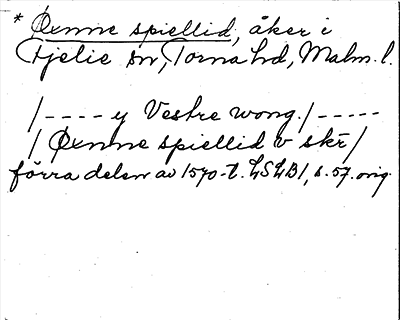 * Øxnne spiellid, åker i
Fjelie sn, Torna hd, Malm. l.
/---- y Vestre wong. /-----
/ Øxnne spiellid v skr̄ /
förra delen av 1570-t. LSLB1, s. 57. orig.